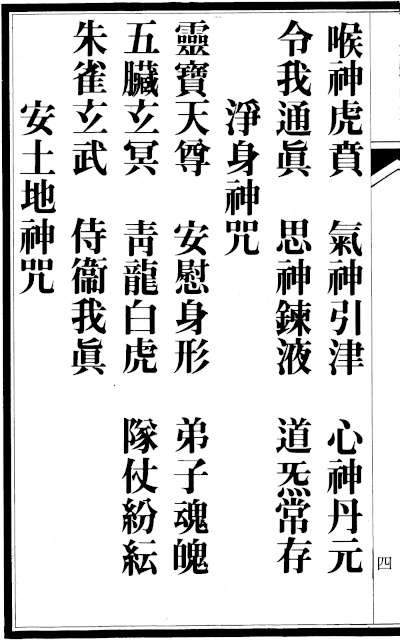 喉神虎賁　氣神引津　心神丹元
令我通眞　思神鍊液　道炁常存
淨身神咒
靈寶天尊　安慰身形　弟子魂魄
五臟玄冥　靑龍白虎　隊仗紛紜
朱雀玄武　侍衞我眞
安土地神咒
四